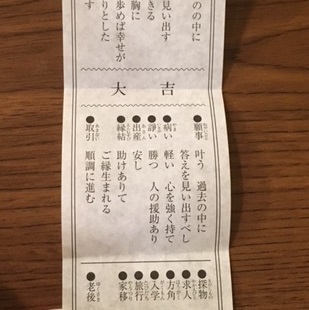 のの中に
見い出す
きる
胸に
歩めば幸せが
りとした
す
大吉
●願事 叶う 過去の中に
答えを見い出すべし
●病い 軽い 心を強く持て
●諍い 勝つ 人の援助あり
●出産 安し
●縁結 助けありて
ご縁生まれる
●取引 順調に進む
●探物
●求人
●方角
●入学
●旅行
●家移
●老後